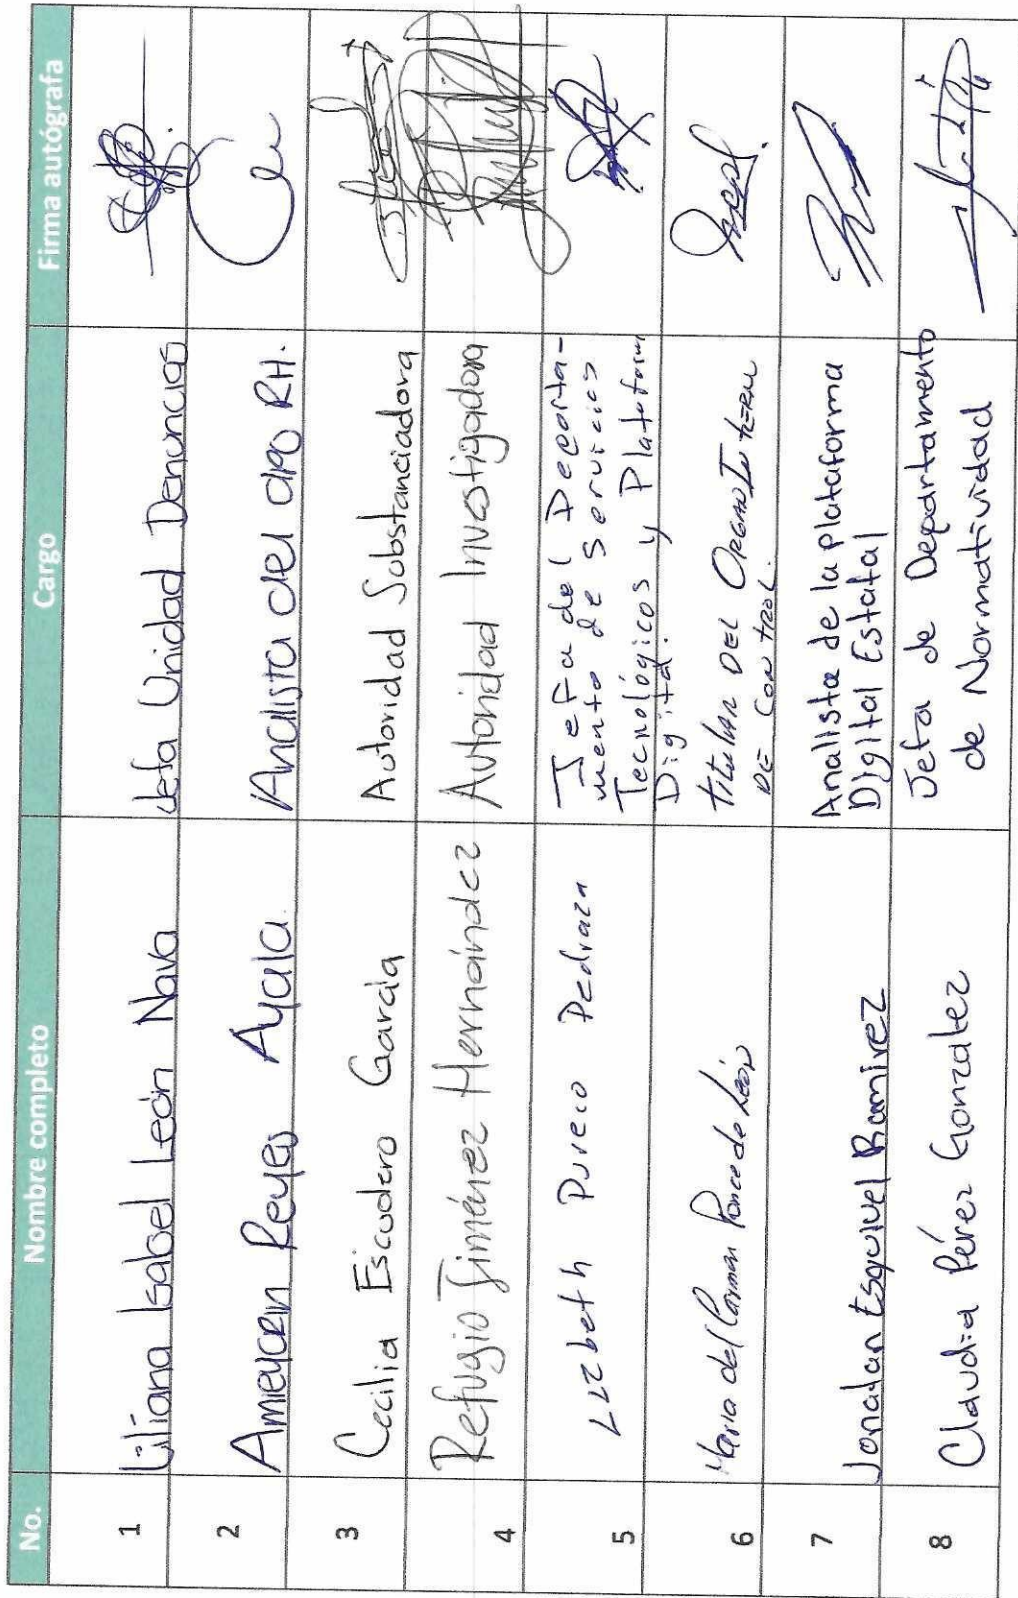 No. Nombre completo Cargo Firma autógrafa
1 Liliana Isabel León Nava Jefa Unidad Denuncias
2 Reyes Ayala Analista del dpo RH.
3 Cecilia Escudero García Autoridad Substanciadora
4 Refugio Jiménez Hernández Autoridad Investigadora
5 Lizbeth Pureco Pedraza Jefa del Departa-
mento de Servicios
Tecnológicos y Plataforma
Digital.
6 Maria del Carmen Ponce de León Titular DEL Organo Interno
DE Control.
7 Jonadan Esquivel Ramirez Analista de la plataforma
Digital Estatal
8 Claudia Pérez González Jefa de Departamento
de Normatividad